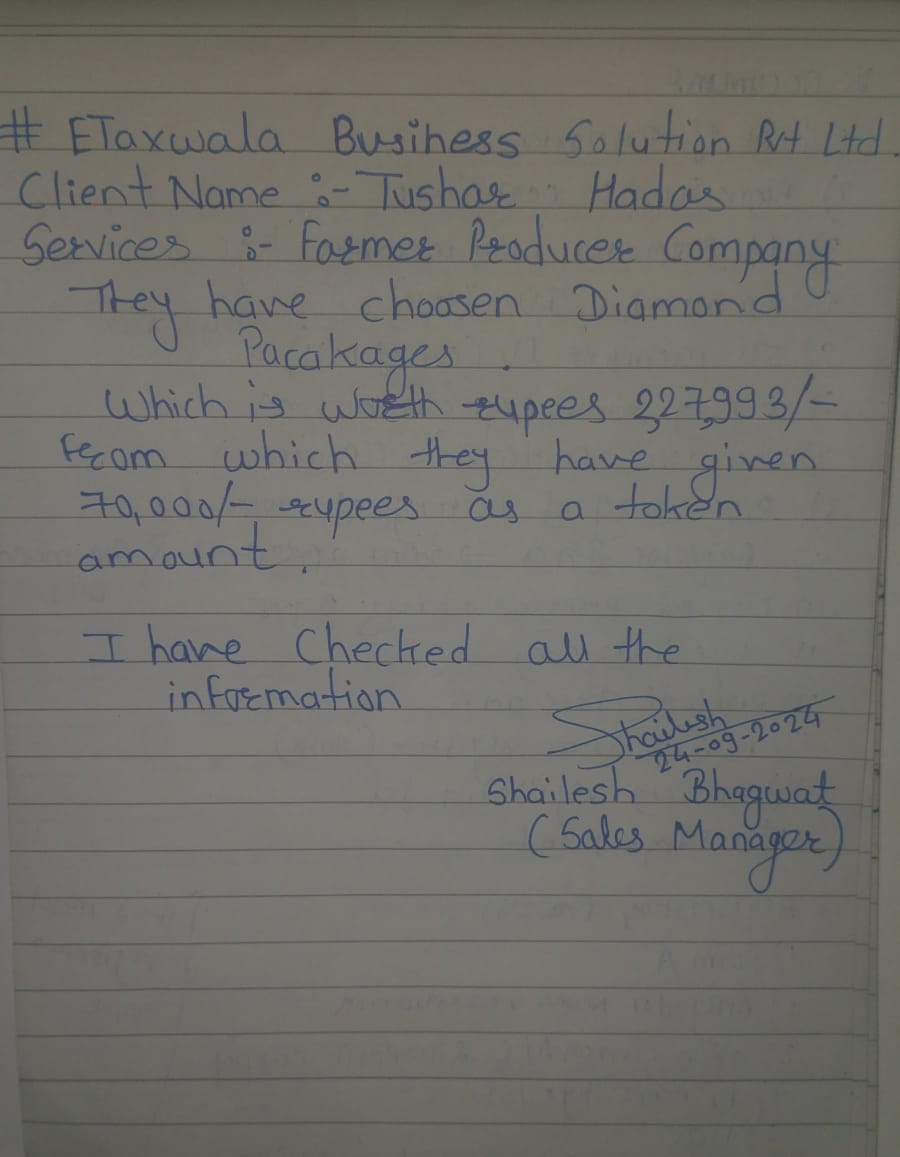 # ETaxwala Business Solution Pvt Ltd.
Client Name :- Tushar Hadas
Services :- Farmer Producer Company
They have choosen Diamond
Pacakages.
Which is worth rupees 2,27,993/-
from which they have given
70,000/- rupees as a token
amount.
I have Checked all the
information
Shailesh
24-09-2024
Shailesh Bhagwat
(Sales Manager)